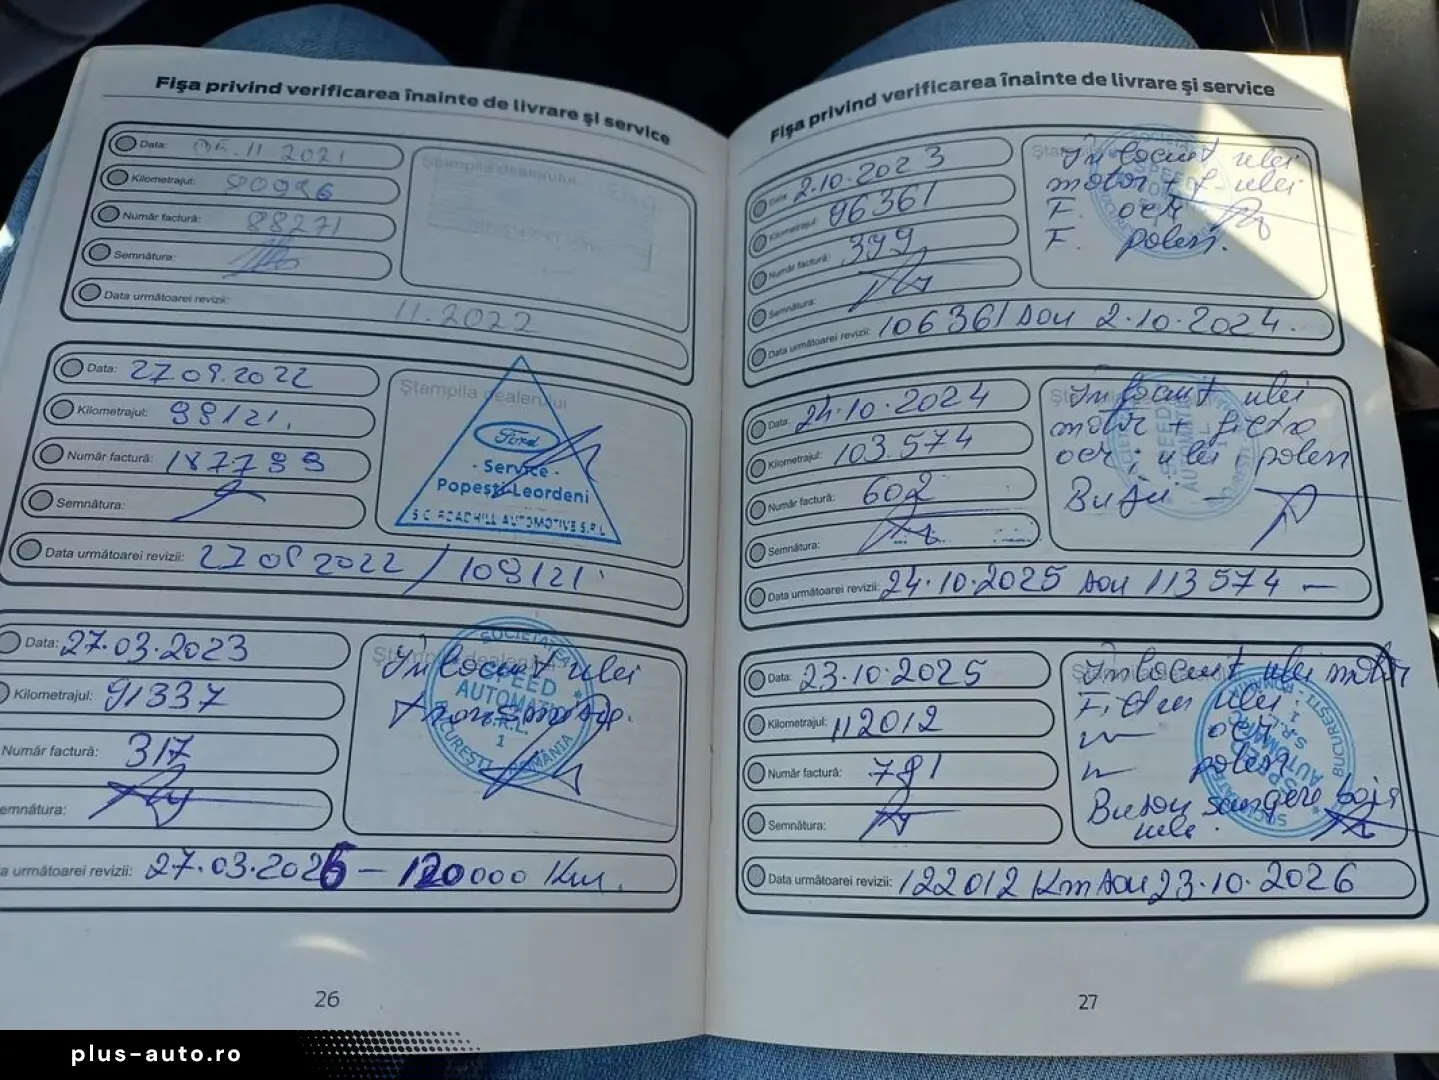 Fişa privind verificarea înainte de livrare şi service
Data: 05.11 2021
Kilometrajul: 80996
Număr factură: 88271
Semnătura:
Data următoarei revizii: 11.2022
Ştampila dealerului
Data: 27.09.2022
Kilometrajul:
Număr factură: 187799
Semnătura:
Data următoarei revizii:
Ştampila dealerului
Ford
- Service -
Popeşti-Leordeni
S.C. ROADHILL AUTOMOTIVE S.R.L
Data: 27.03.2023
Kilometrajul: 91337
Număr factură: 317
emnătura:
a următoarei revizii: 27.03.2026 - 120000 Km.
Înlocuit ulei
SOCIETATEA
SPEED
AUTOMATIC
S.R.L.
1
BUCUREŞTI ROMÂNIA
26
Fişa privind verificarea înainte de livrare şi service
Data: 2.10.2023
Kilometrajul: 96361
Număr factură: 399
Semnătura:
Data următoarei revizii: 106361 sau 2.10.2024.
Înlocuit ulei
motor + f. ulei
F. aer
F. polen.
Data: 24.10.2024
Kilometrajul: 103.574
Număr factură: 602
Semnătura:
Data următoarei revizii: 24.10.2025 sau 113574 -
Înlocuit ulei
motor + filtru
aer, ulei polen
Bujii -
Data: 23.10.2025
Kilometrajul: 112012
Număr factură: 791
Semnătura:
Data următoarei revizii: 122012 Km sau 23.10.2026
Înlocuit ulei motor
Filtru ulei
aer
polen
27
plus-auto.ro